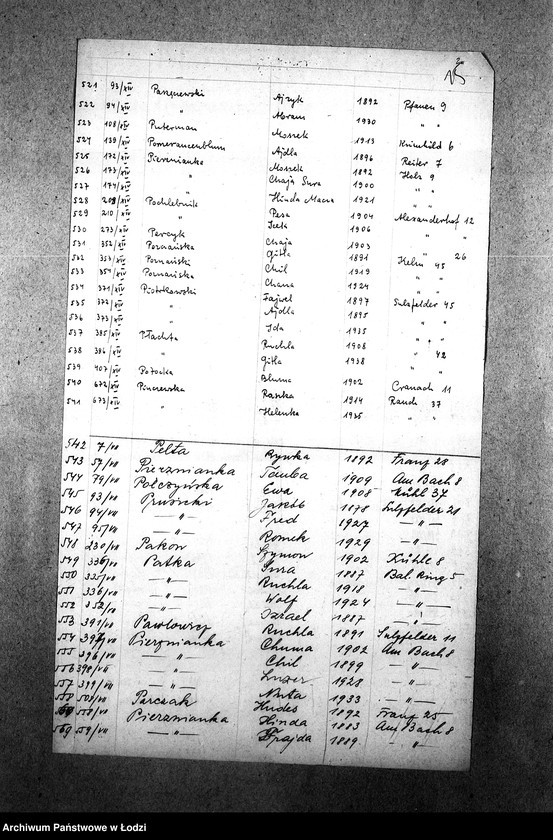 521 93/XIV Paszyewski Ajzyk 1892 Pfauen 9
522 94/XIV " Abram 1930 " "
523 108/XIV Puterman Moszek 1913 Krimhild 6
524 139/XIV Pomerancenblum Ajdla 1896 Reiter 7
525 172/XIV Pierzmianka Moszek 1892 Holz 9
526 173/XIV " Chaja Sura 1900 " "
527 174/XIV " Hinda Macia 1921 " "
528 208/XIV Pochlebnik Pesa 1904 Alexanderhof 12
529 210/XIV " Icek 1906 " "
530 273/XIV Perczyk Chaja 1903 " 26
531 352/XIV Poznańska Gitla 1891 Kelm 45
532 353/XIV Poznański Chil 1919 " "
533 354/XIV Poznańska Chana 1924 " "
534 371/XIV Piotrkowski Fajwel 1897 Sulzfelder 45
535 372/XIV " Ajdla 1895 " "
536 373/XIV " Ida 1935 " "
537 385/XIV Płachta Ruchla 1908 " 42
538 386/XIV " Gitla 1938 " "
539 407/XIV Potocka Bluma 1902 Cranach 11
540 672/XIV Pinczewska Raszka 1914 Rauch 37
541 673/XIV " Helenka 1935 " "
542 7/VII Pelta Rywka 1892 Franz 28
543 57/VII Pierzmianka Tauba 1909 Am Bach 8
544 79/VII Połczyńska Ewa 1908 Kühl 37
545 93/VII Prusicki Jakób 1878 Sulzfelder 21
546 94/VII — " — Fred 1927 — " —
547 95/VII — " — Romek 1929 — " —
548 230/VII Pakow Szymon 1902 Kühle 8
549 336/VII Patka Sura 1887 Bal. Ring 5
550 335/VII — " — Ruchla 1918 — " —
551 336/VII — " — Wolf 1924 — " —
552 352/VII — " — Izrael 1887 — " —
553 391/VII Pawłowicz Ruchla 1891 Sulzfelder 11
554 397/VII Pierzmianka Chuma 1902 Am Bach 8
555 396/VII — " — Chil 1899 — " —
556 398/VII — " — Luzer 1928 — " —
557 399/VII — " — Nuta 1933 — " —
558 501/VII Parczak Hudes 1892 Franz 25
558/VII Pierzmianka Hinda 1883 Am Bach 8
559/VII — " — Frajda 1889 — " —
Archiwum Państwowe w Łodzi